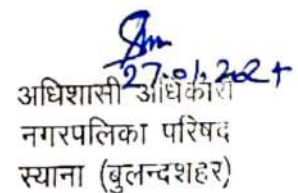 27.01.202
अधिशासी अधिकारी
नगरपालिका परिषद
स्याना (बुलन्दशहर)